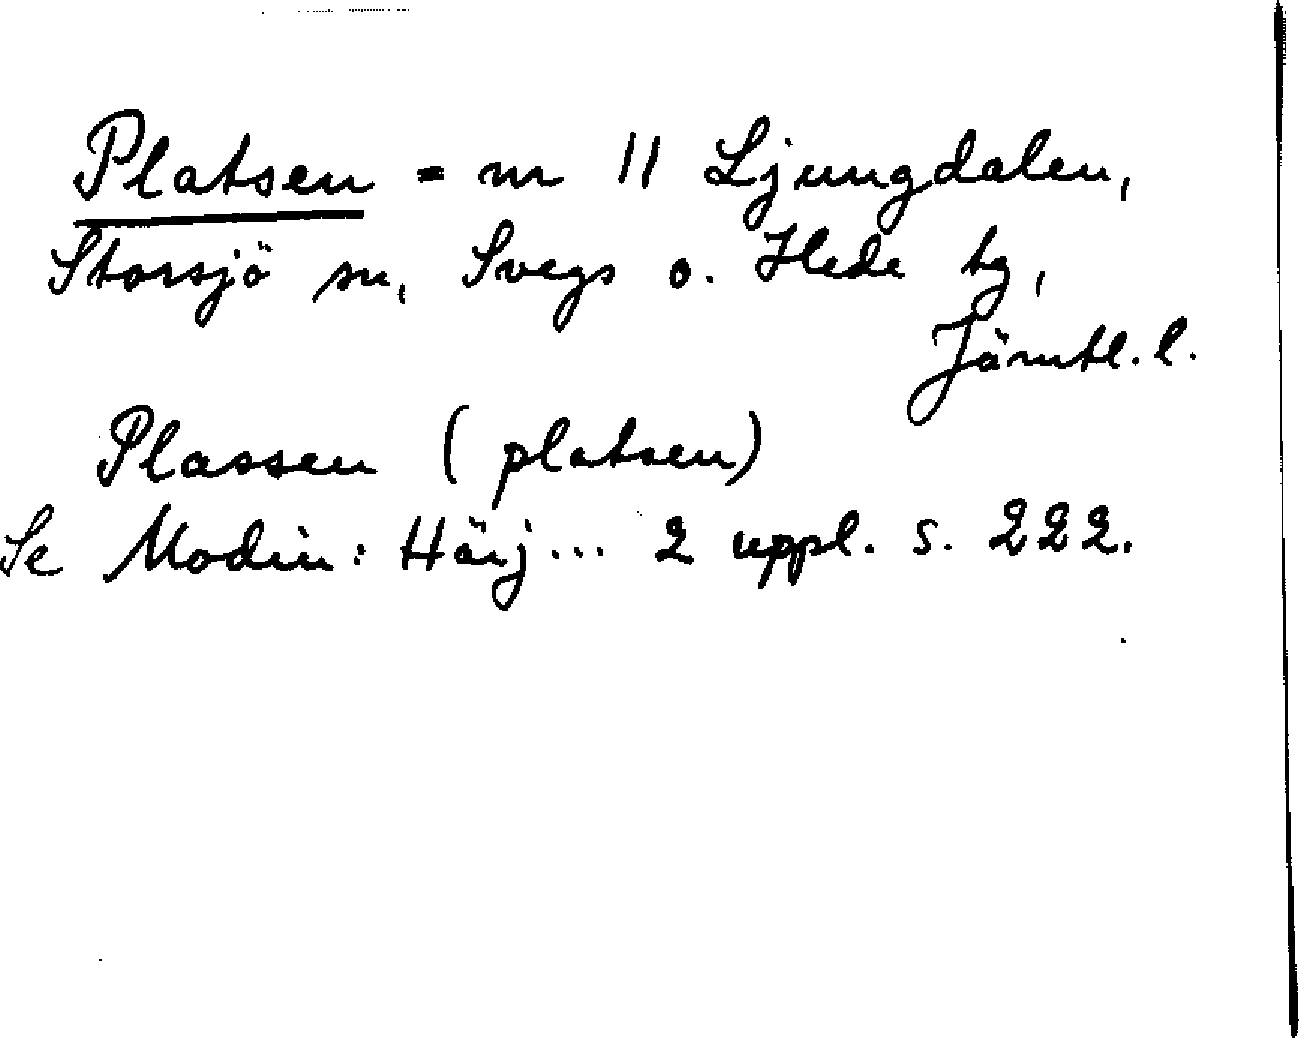 Platsen = nr 11 Ljungdalen,
Storsjö sn, Svegs o. Hede tg,
Jämtl. l.
Plassen (platsen)
Se Modin: Härj... 2 uppl. s. 222.